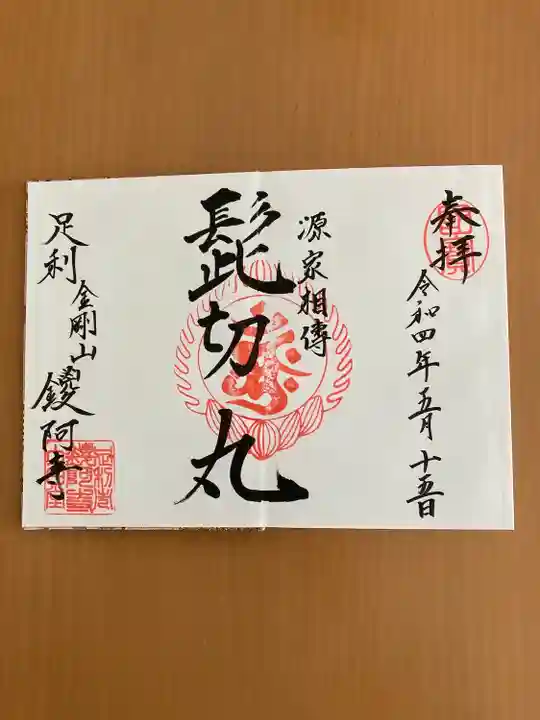 奉拝
令和四年五月十五日
源家相傳
髭切丸
足利
金剛山
鑁阿寺